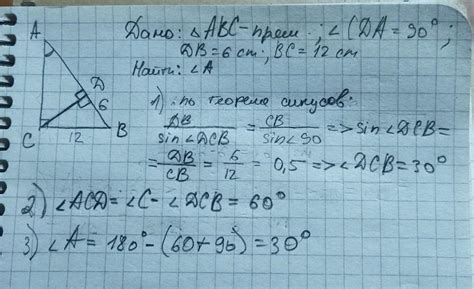 A
D
6
C
12
B
Дано: ∆ABC-прям.; ∠CDA = 90°;
DB = 6 cm; BC = 12 cm
Найти: ∠A
1) по теореме синусов:
DB/sin∠DCB = CB/sin∠90 => sin∠DCB =
= DB/CB = 6/12 = 0,5 => ∠DCB = 30°
2) ∠ACD = ∠C - ∠DCB = 60°
3) ∠A = 180° - (60 + 90) = 30°